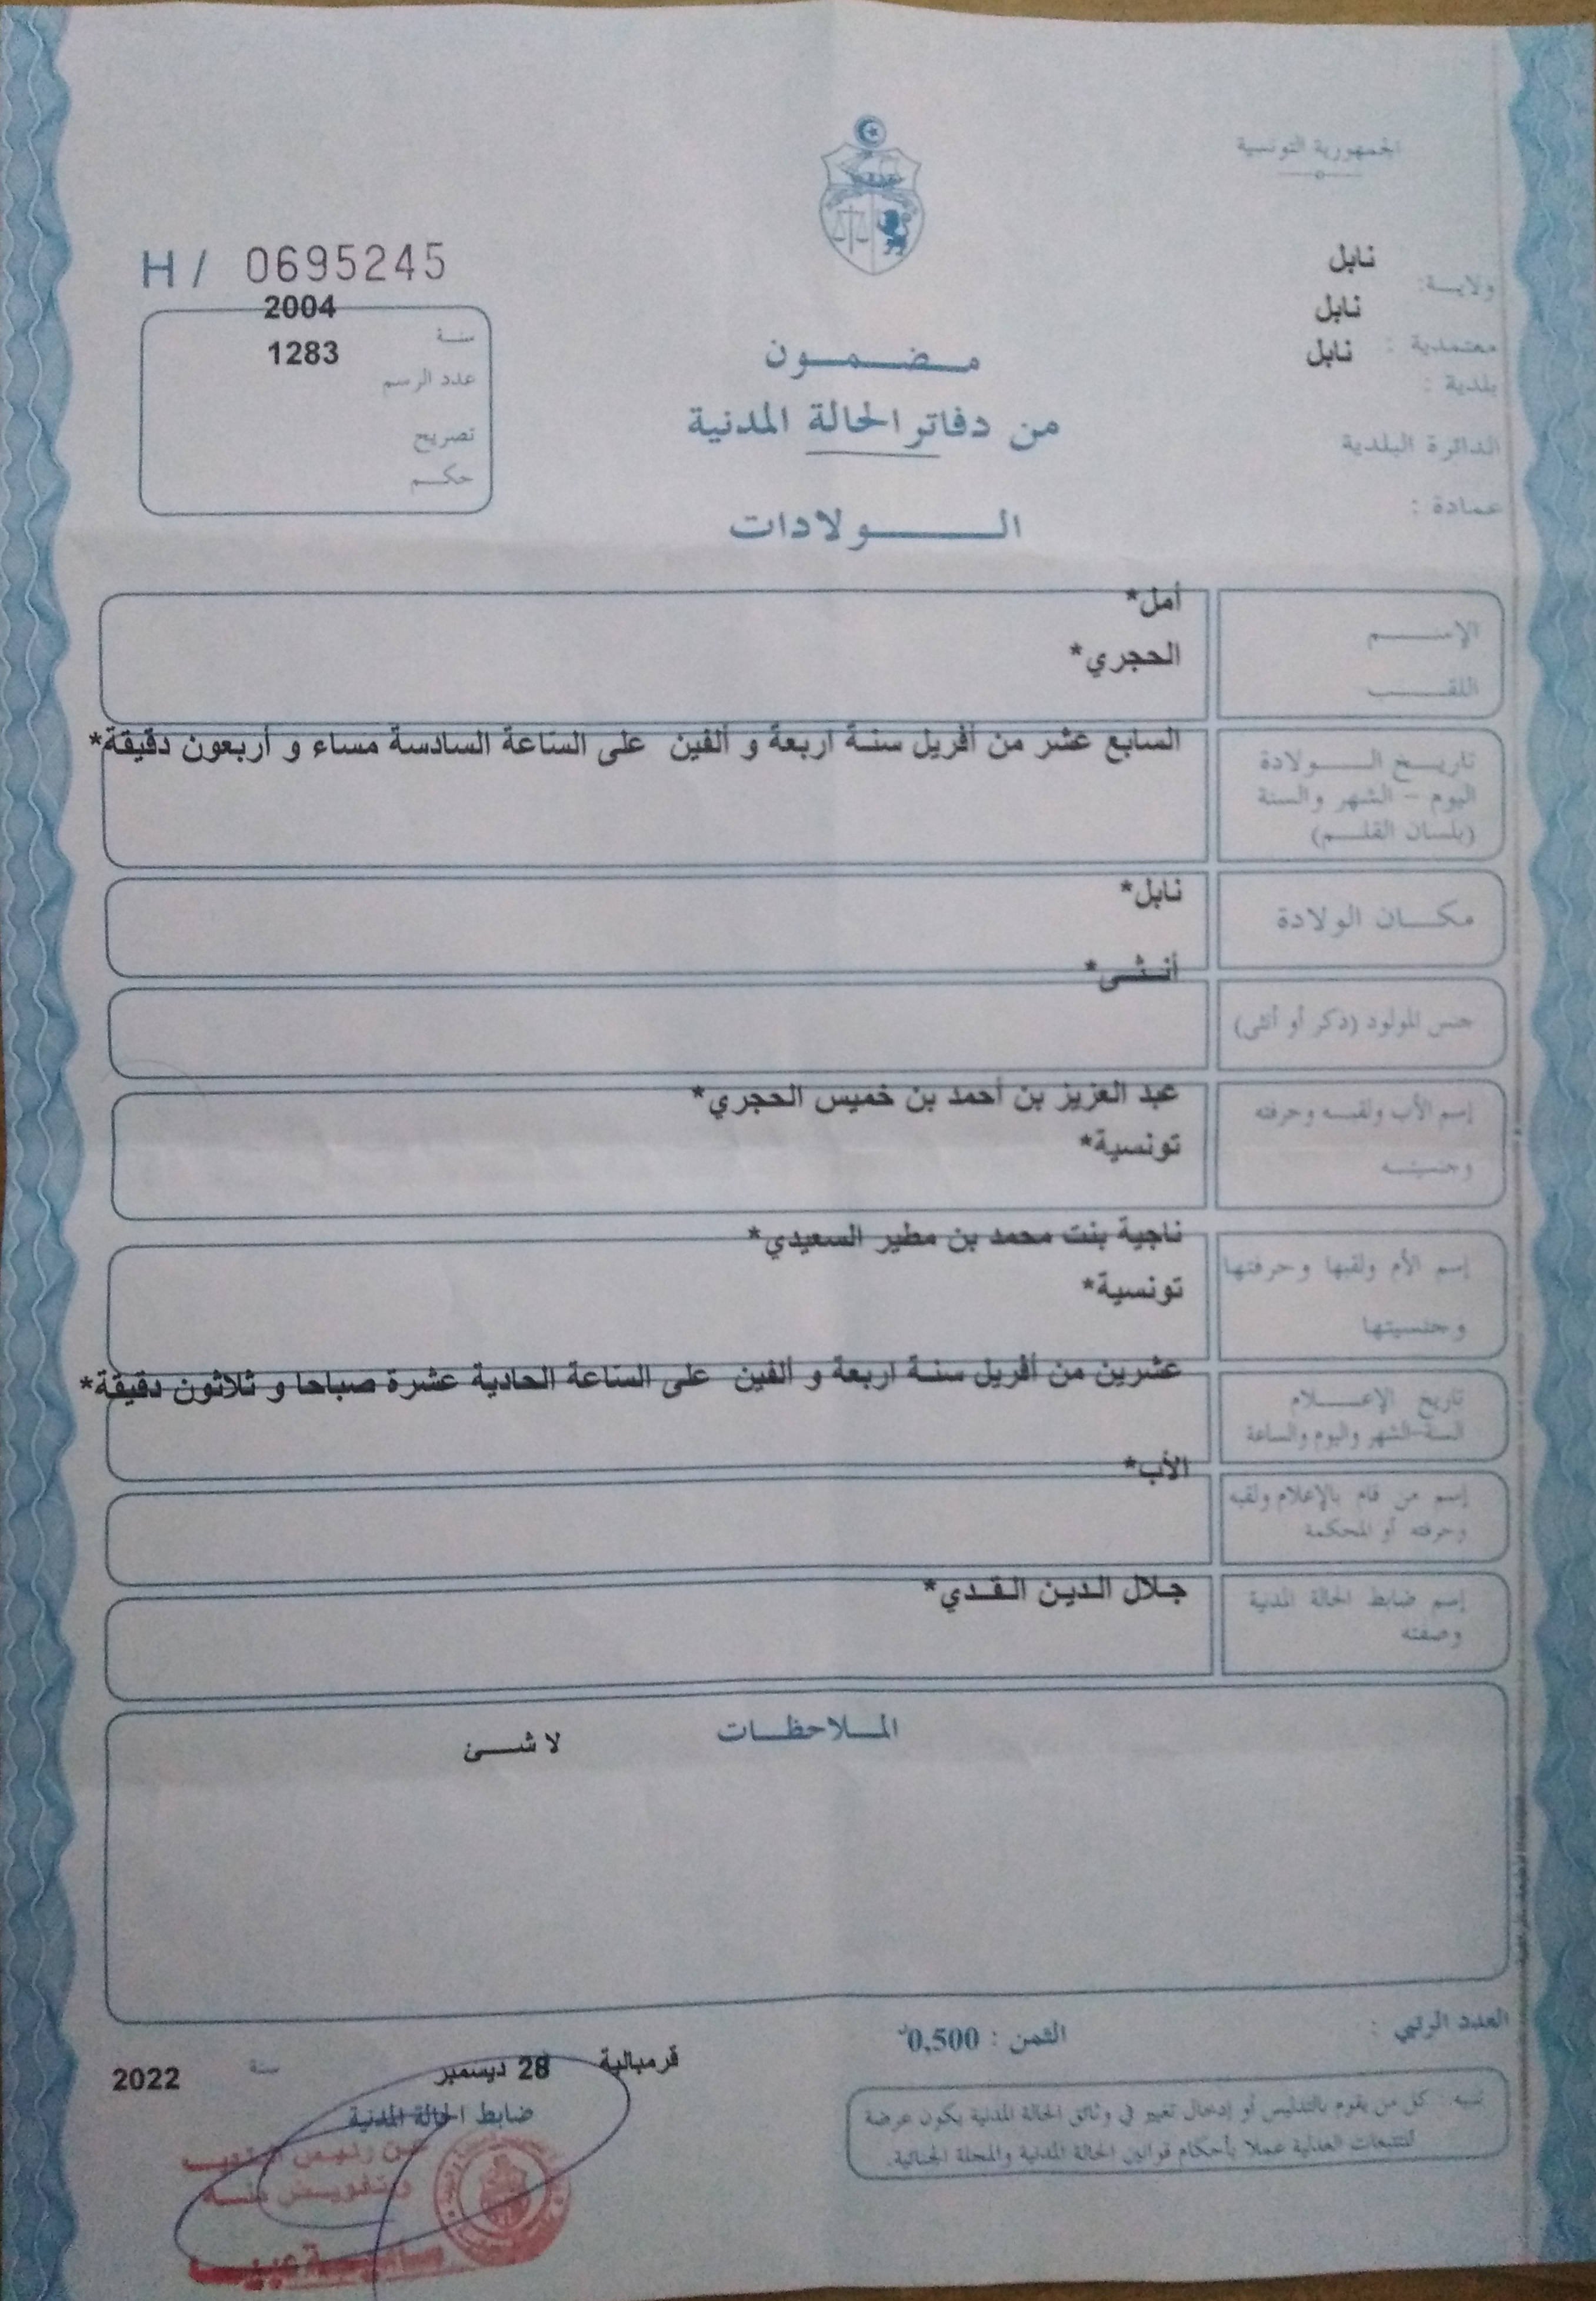 الجمهورية التونسية
ولايـــة: نابل
معتمدية : نابل
بلدية : نابل
الدائرة البلدية
عمادة :
H / 0695245
سنة 2004
عدد الرسم 1283
تصريح
حكم
مضمون
من دفاتر الحالة المدنية
الولادات
الإسم أمل*
اللقب الحجري*
تاريخ الولادة
اليوم - الشهر والسنة
(بلسان القلم)
السابع عشر من أفريل سنة اربعة و ألفين على الساعة السادسة مساء و أربعون دقيقة*
مكان الولادة نابل*
جنس المولود (ذكر أو أنثى) أنثى*
إسم الأب ولقبه وحرفته
وجنسيته
عبد العزيز بن أحمد بن خميس الحجري*
تونسية*
إسم الأم ولقبها وحرفتها
وجنسيتها
ناجية بنت محمد بن مطير السعيدي*
تونسية*
تاريخ الإعلام
السنة-الشهر واليوم والساعة
عشرين من أفريل سنة اربعة و ألفين على الساعة الحادية عشرة صباحا و ثلاثون دقيقة*
إسم من قام بالإعلام ولقبه
وحرفته أو المحكمة
الأب*
إسم ضابط الحالة المدنية
وصفته
جلال الدين القدي*
الملاحظات
لا شئ
العدد الرتبي :
الثمن : 0,500
قرمبالية 28 ديسمبر سنة 2022
ضابط الحالة المدنية
تنبيه : كل من يقوم بالتدليس أو إدخال تغيير في وثائق الحالة المدنية يكون عرضة
للتتبعات العدلية عملا بأحكام قوانين الحالة المدنية والمجلة الجنائية.
عن رئيس
وتفويض منه